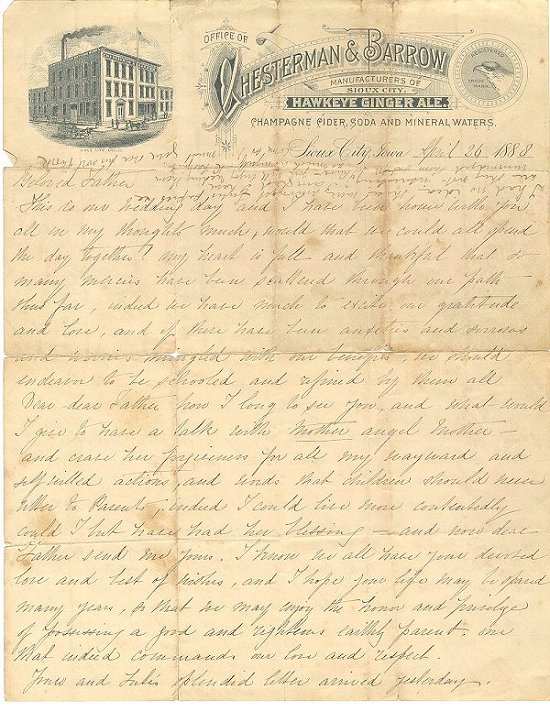 OFFICE OF
CHESTERMAN & BARROW
MANUFACTURERS OF
SIOUX CITY.
HAWKEYE GINGER ALE.
CHAMPAGNE CIDER, SODA AND MINERAL WATERS.
REGISTERED
TRADE MARK
Sioux City, Iowa April 26 1888
Beloved Father
This is our wedding day and I have been home with you
all in my thoughts much, would that we could all spend
the day together! my heart is full and thankful that so
many mercies have been scattered through our path
thus far, indeed we have much to excite our gratitude
and love, and if there have been anxieties and sorrows
and worries mingled with our benefits, we should
endeavor to be schooled and refined by them all
Dear dear Father how I long to see you, and what would
I give to have a talk with Mother angel Mother —
and crave her forgiveness for all my wayward and
self willed actions, and words that children should never
utter to Parents, indeed I could live more contentedly
could I but have had her blessing — and now dear
Father send me yours, I know we all have your devoted
love and best of wishes, and I hope your life may be spared
many years, so that we may enjoy the honor and privilege
of possessing a good and righteous earthly parent, one
that indeed commands our love and respect.
Yours and splendid letter arrived yesterday.